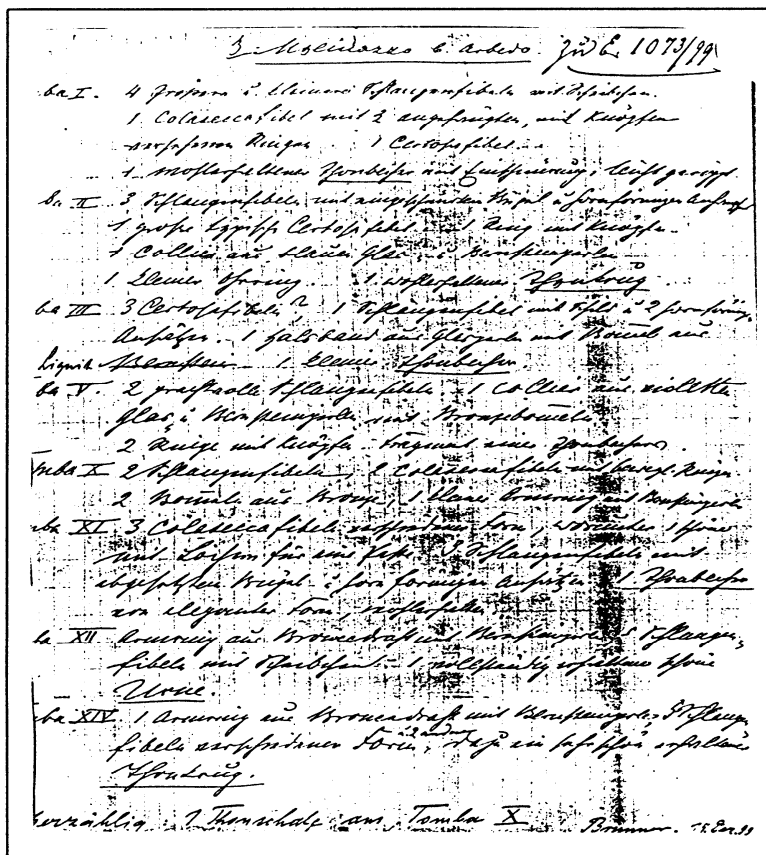 3. Molinazzo b. Arbedo. Zu E. 1073/99
ba I. 4 grössere u. kleinere Schlangenfibeln mit Scheibchen.
1 Colaseccafibel mit 2 angehängten, mit Knöpfen
versehenen Ringen 1 Certosafibel
1 wohlerhaltener Thonbecher mit Einschnürung, leicht gerippt
ba II 3 Schlangenfibeln mit Bügel u. hornförmigen
1 große Certosafibel 1 Ring mit Knöpfen
1 Collier aus blauen Glas u. Bernsteinperlen
1 kleiner Ohrring. 1 wohlerhaltener Thonkrug
ba III 3 Certosafibeln? 1 Schlangenfibel mit u 2 hornförmig.
Ansätzen. 1 Halsband aus Glasperlen mit Bommel aus
Lignit Bernstein 1 kleiner Thonbecher
ba V. 2 prachtvolle Schlangenfibeln 1 Collier aus violetten
Glas u Bernsteinperlen mit Bronzebommeln
2 Ringe mit Knöpfen Fragment eines Thonbechers
mba X 2 Schlangenfibeln, 2 Colaseccafibeln mit Ringen
2 Bommeln aus Bronze, 1 Armring mit Bernsteinperle
mba XI 3 Colaseccafibeln verschiedener Form, worunter 1 schöne
mit Löchern für eine Schlangenfibeln mit
abgesetzten Bügel u. hornförmigen Ansätzen 1 Thonbecher
von eleganter Form, wohlerhalten
ba XII Armring aus Bronzedraht mit Bernsteinperle Schlangen-
fibeln mit Scheibchen 1 vollständig erhaltene schöne
Urne.
mba XIV 1 Armring aus Broncedraht mit Bernsteinperle, 5 Schlangen
fibeln verschiedener Form, dazu ein sehr schön erhaltener
Thonkrug.
berzählig: 1 Thonschale aus Tomba X Brunner.